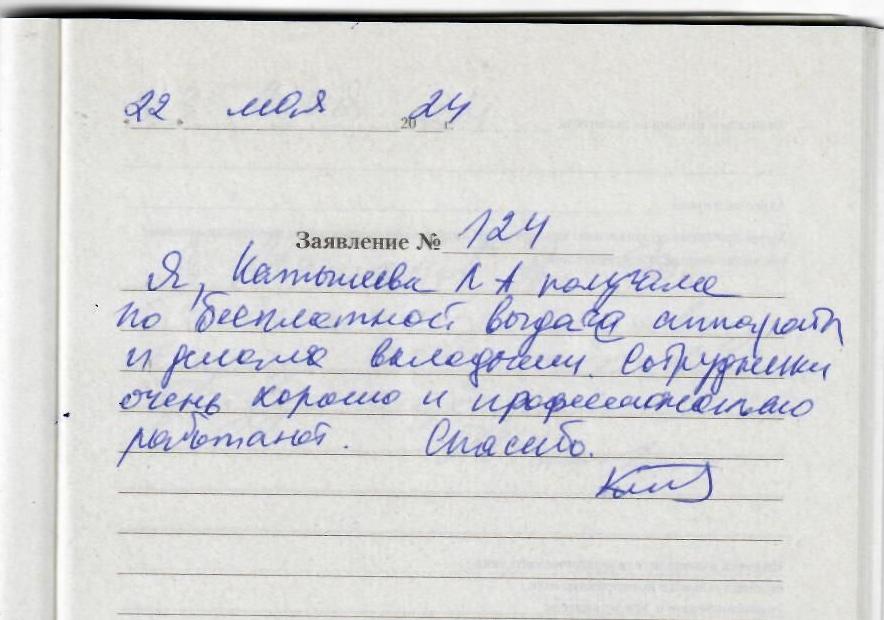 22 мая 2024 г.
Заявление № 124
Я, Катышева Л А получала
по бесплатной выдача аппараты
и делала вкладыши. Сотрудники
очень хорошо и профессионально
работают. Спасибо.